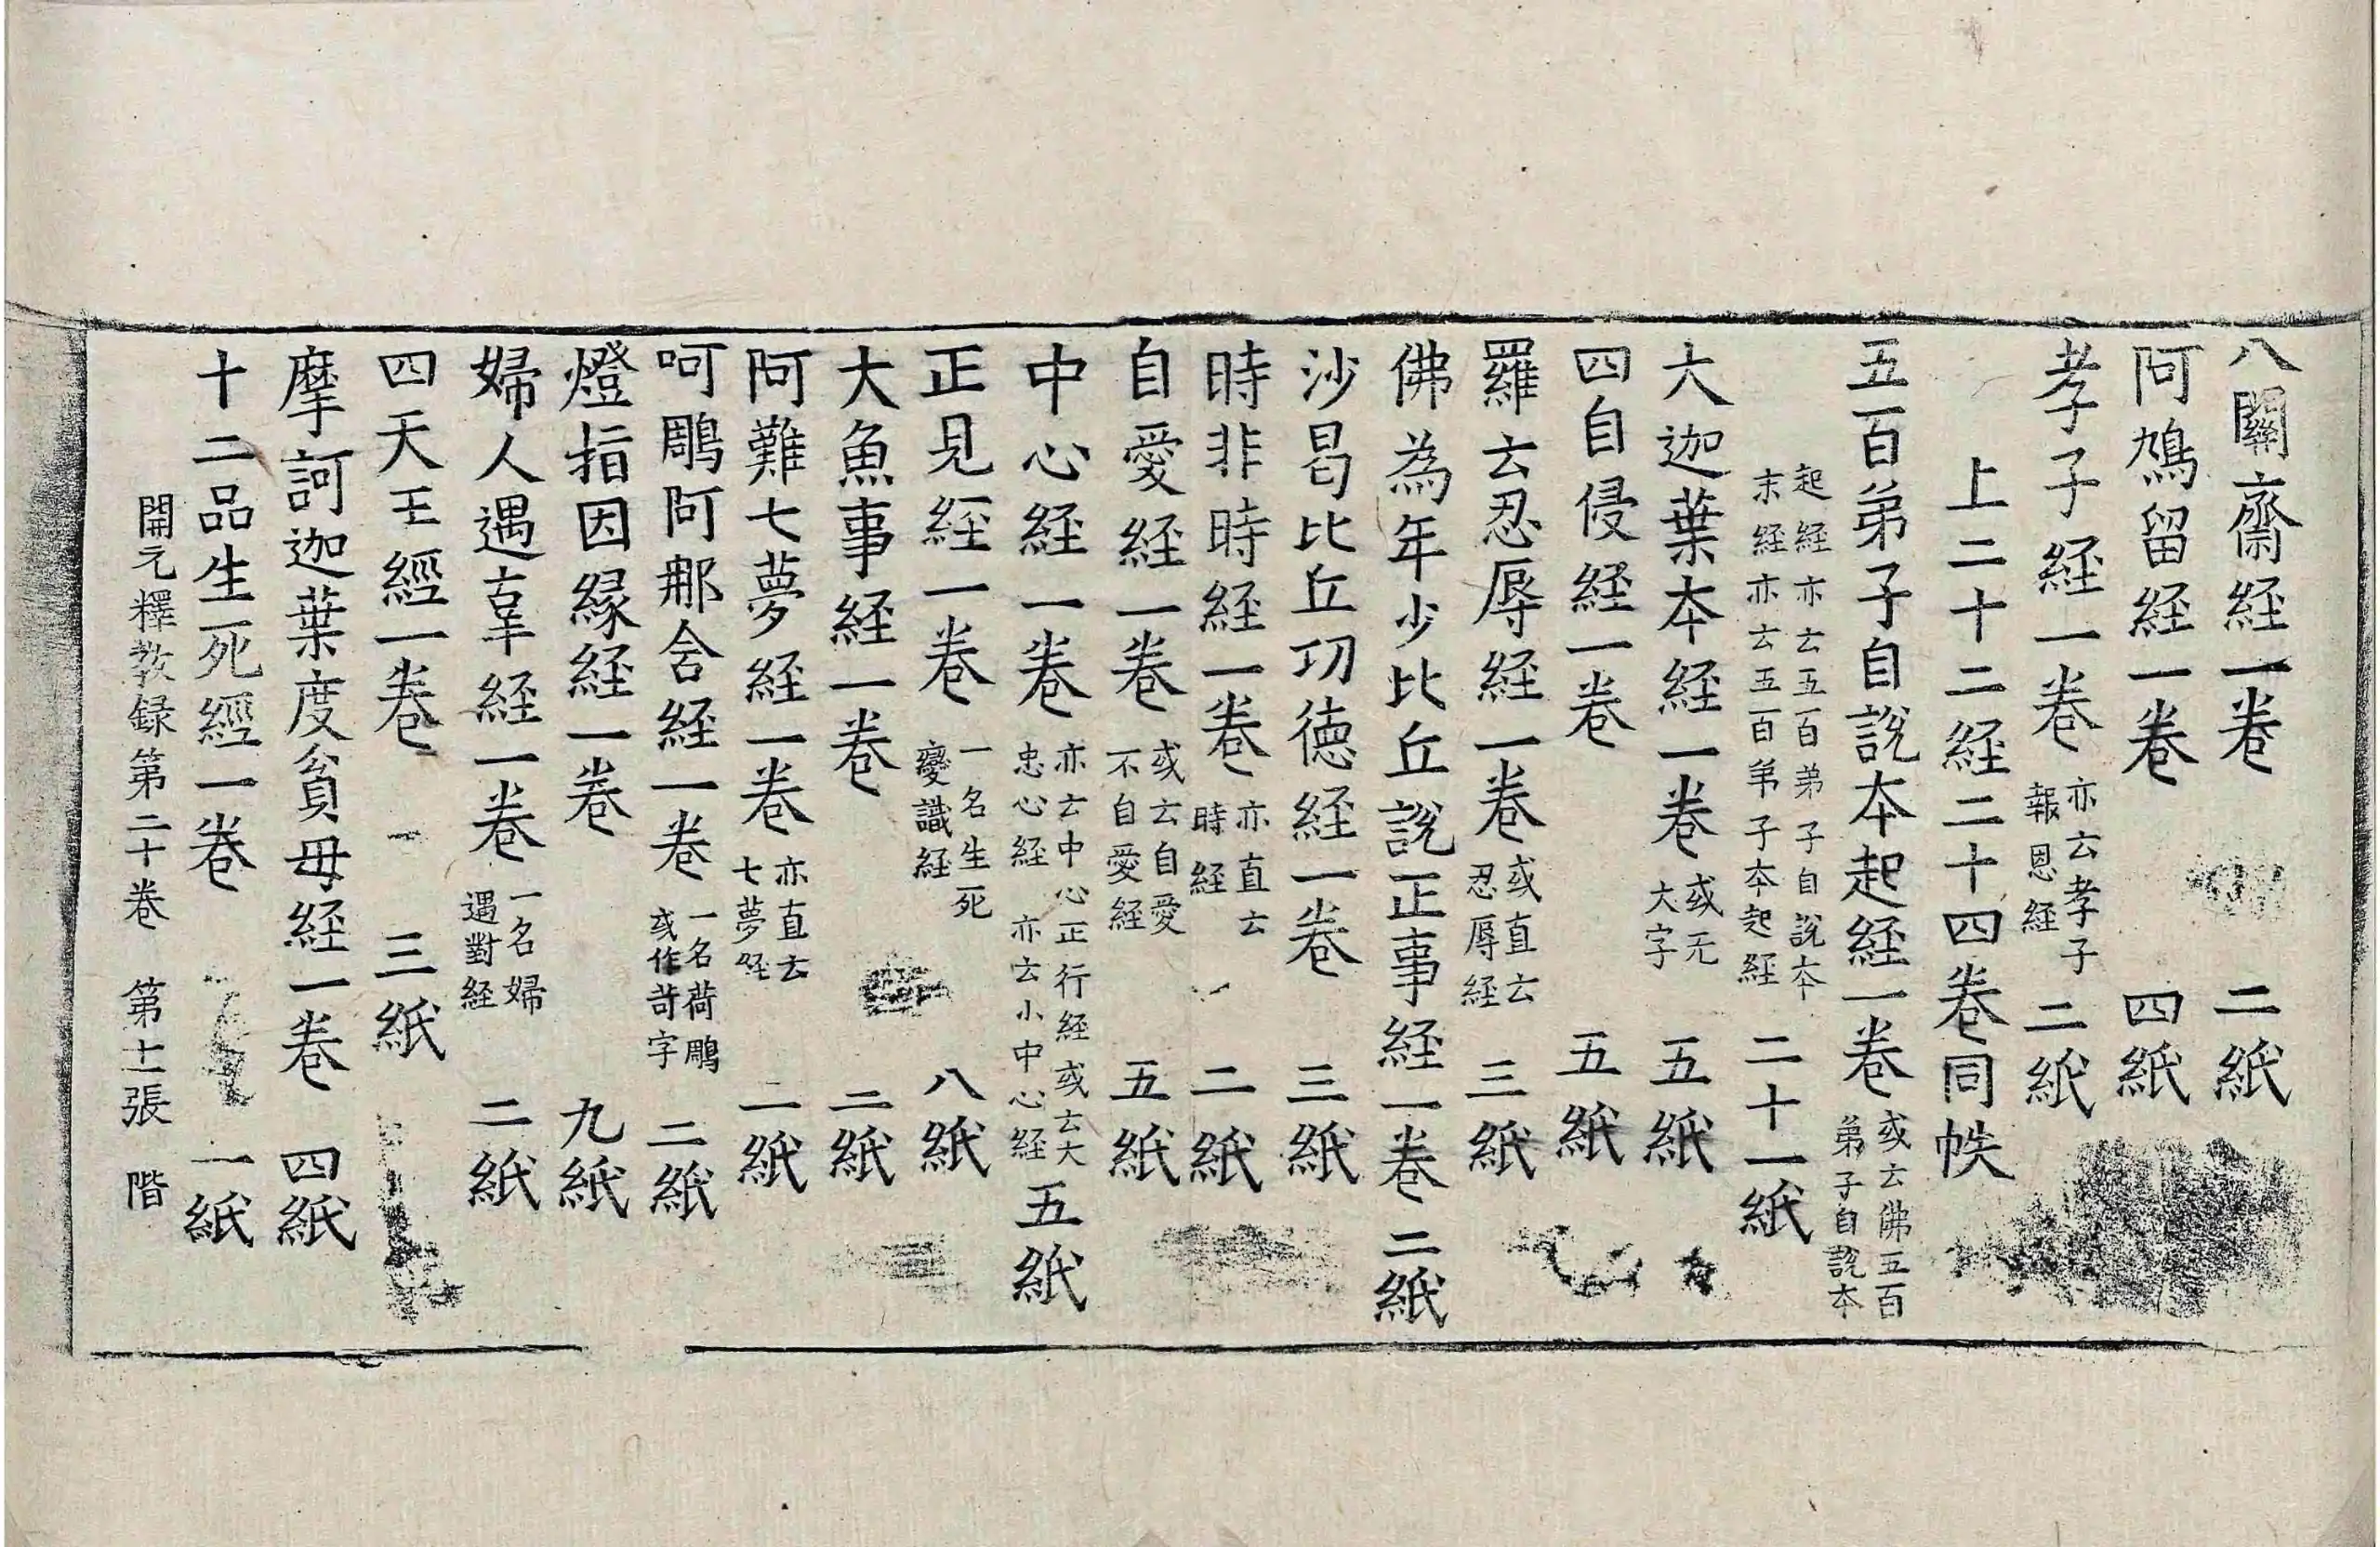 八關齋経一卷 二紙
阿鳩留経一卷 四紙
孝子経一卷 亦云孝子報恩経 二紙
上二十二経二十四卷同帙
五百弟子自說本起経一卷 或云佛五百弟子自說本
起経亦云五百弟子自說本末経亦云五百弟子本起経 二十一紙
大迦葉本経一卷 或无大字 五紙
四自侵経一卷 五紙
羅云忍辱経一卷 或直云忍辱経 三紙
佛為年少比丘說正事経一卷 二紙
沙曷比丘功德経一卷 三紙
時非時経一卷 亦直云時経 二紙
自愛経一卷 或云自愛不自愛経 五紙
中心経一卷 亦云中心正行経或云大忠心経亦云小中心経 五紙
正見経一卷 一名生死變識経 八紙
大魚事経一卷 二紙
阿難七夢経一卷 亦直云七夢経 二紙
呵鵰阿那含経一卷 一名荷鵰或作苛字 二紙
燈指因縁経一卷 九紙
婦人遇辜経一卷 一名婦遇對経 二紙
四天王經一卷 三紙
摩訶迦葉度貧母経一卷 四紙
十二品生死經一卷 一紙
開元釋教録第二十卷 第十一張 階